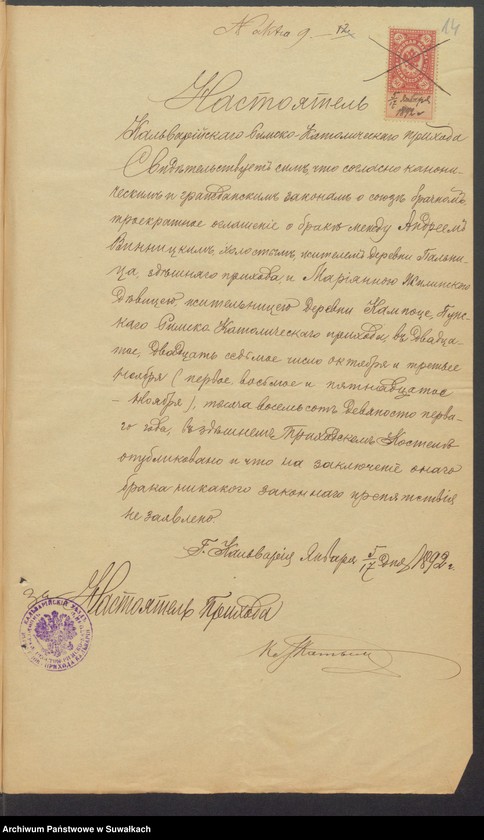 N акта 9. — 92
14
5/17 Января
1892 г
Настоятель
Кальварійскаго Римско-Католическаго прихода
Свидѣтельствуетъ симъ, что согласно канони-
ческимъ и гражданскимъ законамъ о союзѣ брачномъ,
троекратное оглашеніе о бракѣ между Андреемъ
Винницкимъ, холостымъ, жителемъ деревни Пальни-
ца, здѣшняго прихода, и Маріанною Жилинскою
Дѣвицею, жительницею деревни Кампоце, Пунс-
каго Римско Католическаго прихода, въ двадца-
тое, двадцать седьмое число октября и третье
ноября (первое, восьмое и пятнадцатое
— ноября), тысяча восемьсотъ девяносто перва-
го года, въ здѣшнемъ Приходскомъ Костелѣ
опубликовано и что на заключеніе онаго
брака никакого законнаго препятствія
не заявлено.
Г. Кальварія Января 5/17 дня 1892 г.
За Настоятель Прихода
Кс.
Archiwum Państwowe w Suwałkach